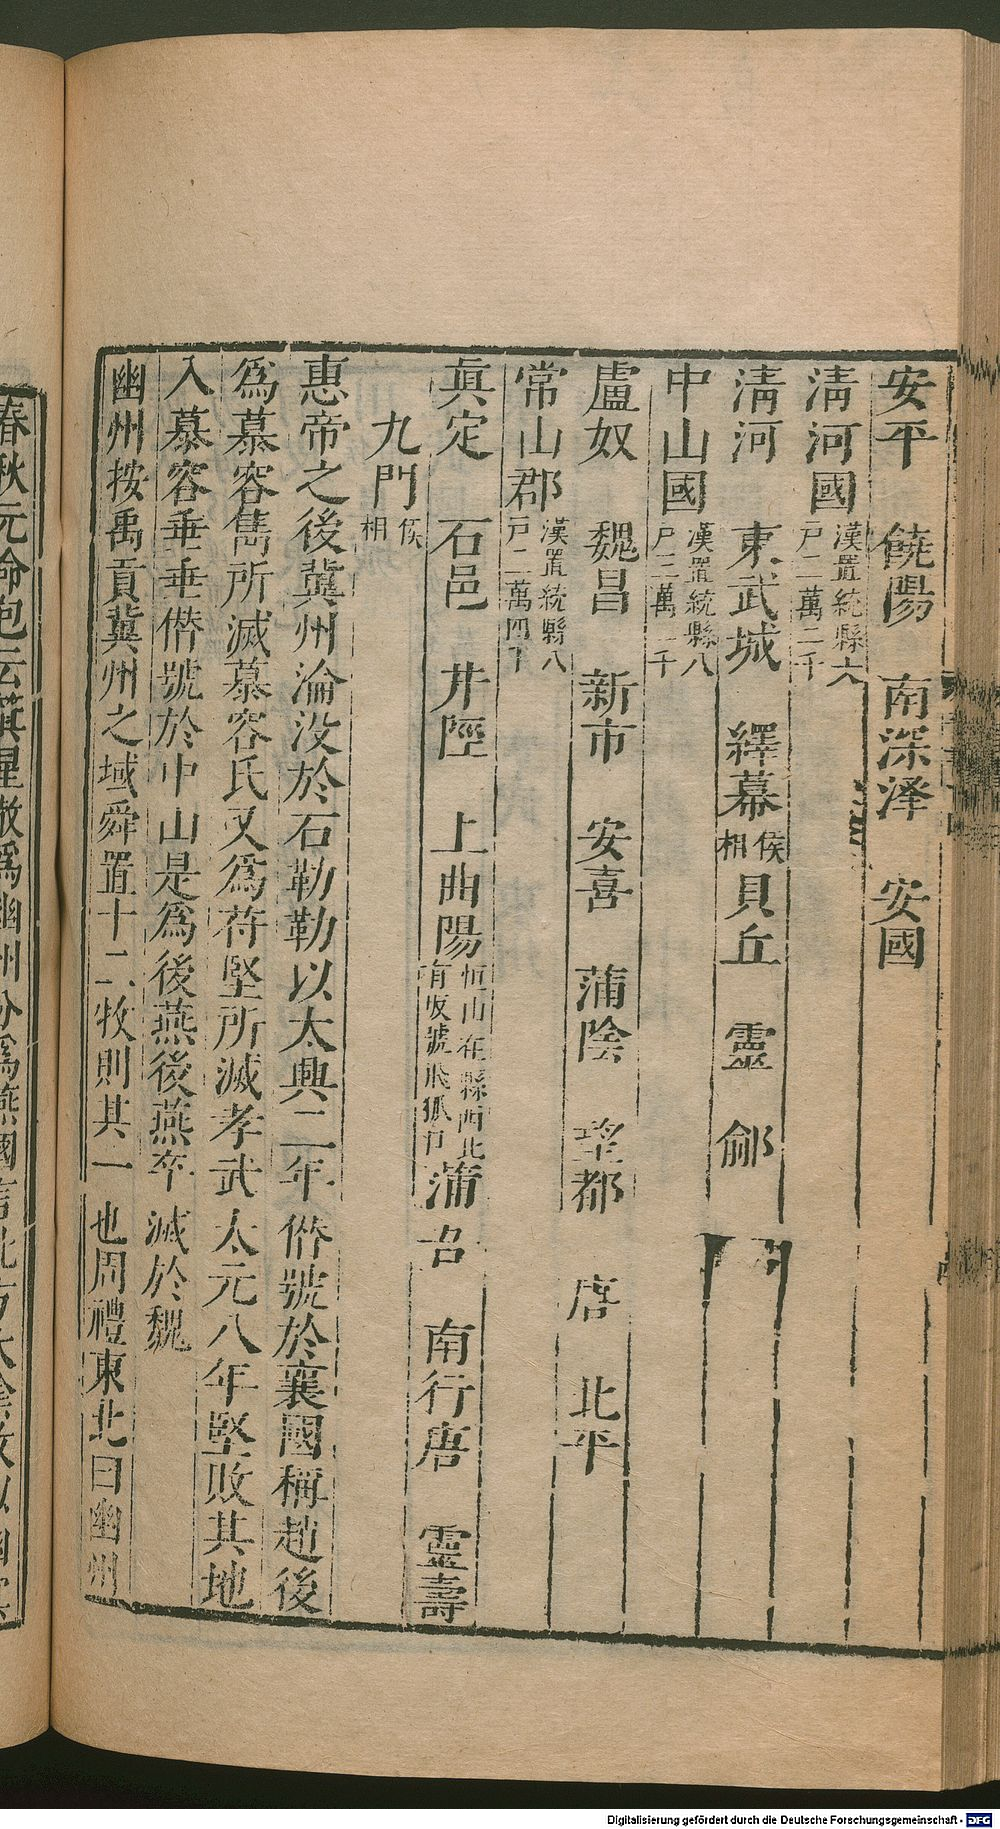 安平 饒陽 南深澤 安國
清河國漢置統縣六戶二萬二千
清河 東武城 繹幕侯相貝丘 靈 鄃
中山國漢置統縣八戶三萬二千
盧奴 魏昌 新市 安喜 蒲陰 望都 唐 北平
常山郡漢置統縣八戶二萬四千
眞定 石邑 井陘 上曲陽恒山在縣西北有坂號飛狐口蒲吾 南行唐 靈壽
九門侯相
惠帝之後冀州淪没於石勒勒以太興二年僭號於襄國稱趙後
爲慕容雋所滅慕容氏又爲苻堅所滅孝武太元八年堅敗其地
入慕容垂垂僭號於中山是爲後燕後燕卒滅於魏
幽州按禹貢冀州之域舜置十二牧則其一也周禮東北曰幽州
春秋元命包云箕星散爲幽州分爲燕國言北方太陰故以幽冥
Digitalisierung gefördert durch die Deutsche Forschungsgemeinschaft - DFG